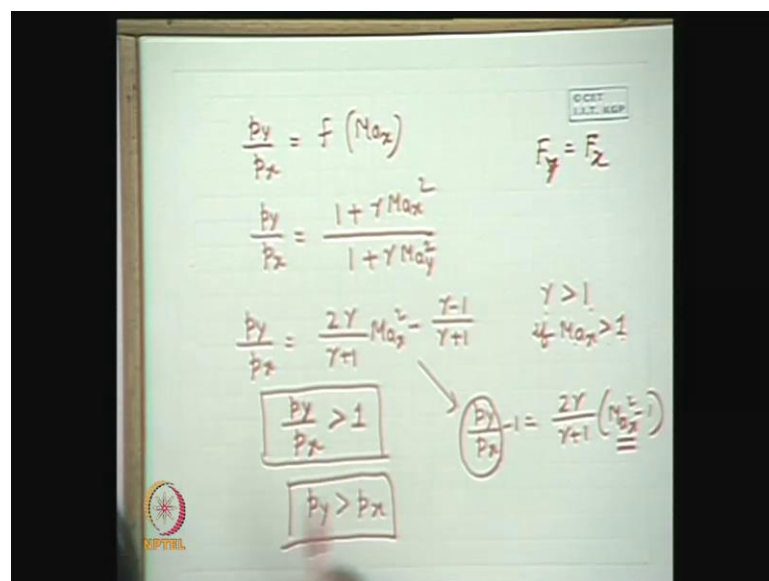 ©CET
I.I.T. KGP
py/px = f (Max)
Fy = Fx
py/px = (1 + γMax²)/(1 + γMay²)
py/px = 2γ/(γ+1) Max² - (γ-1)/(γ+1)
γ > 1
if Max > 1
py/px > 1
py/px - 1 = 2γ/(γ+1) (Max² - 1)
py > px
NPTEL